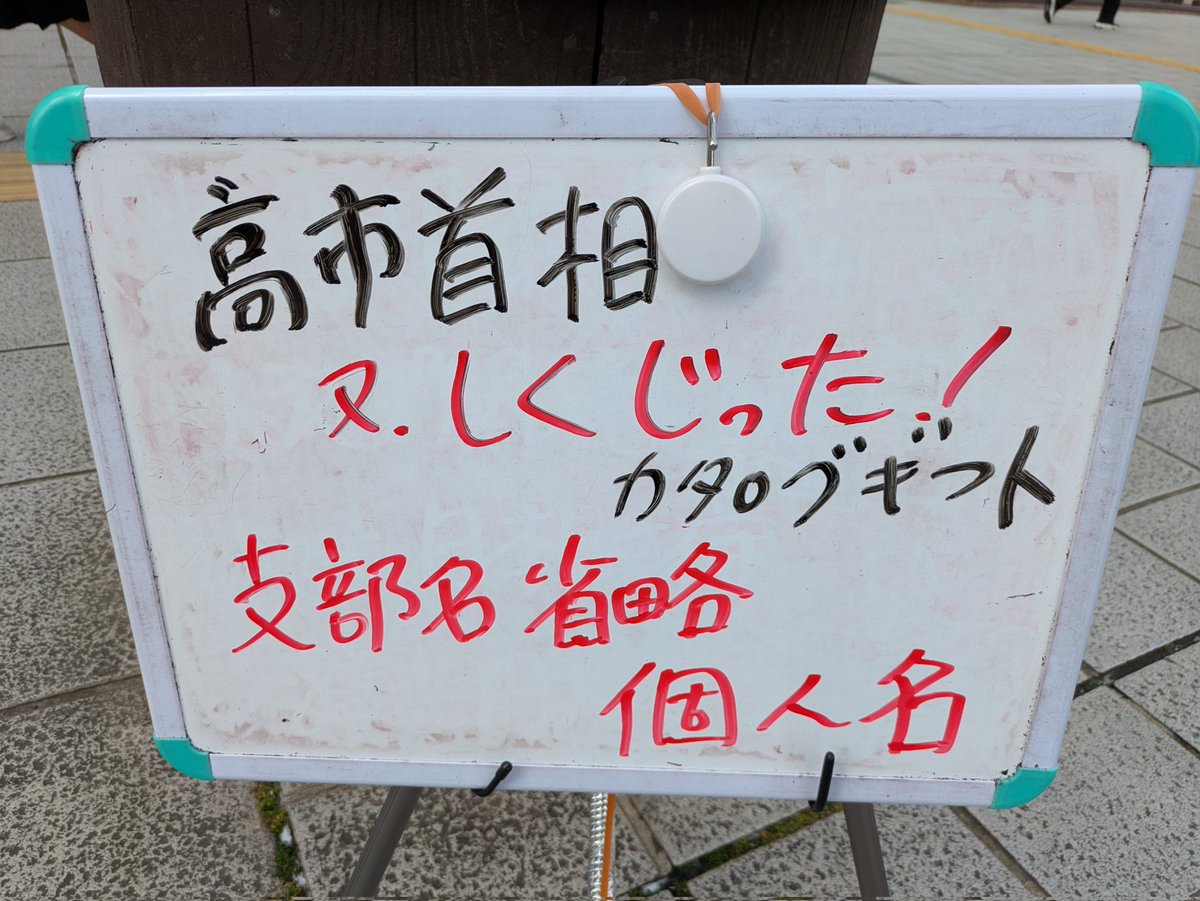 高市首相
又.しくじった.!
カタログギフト
支部名省略
個人名